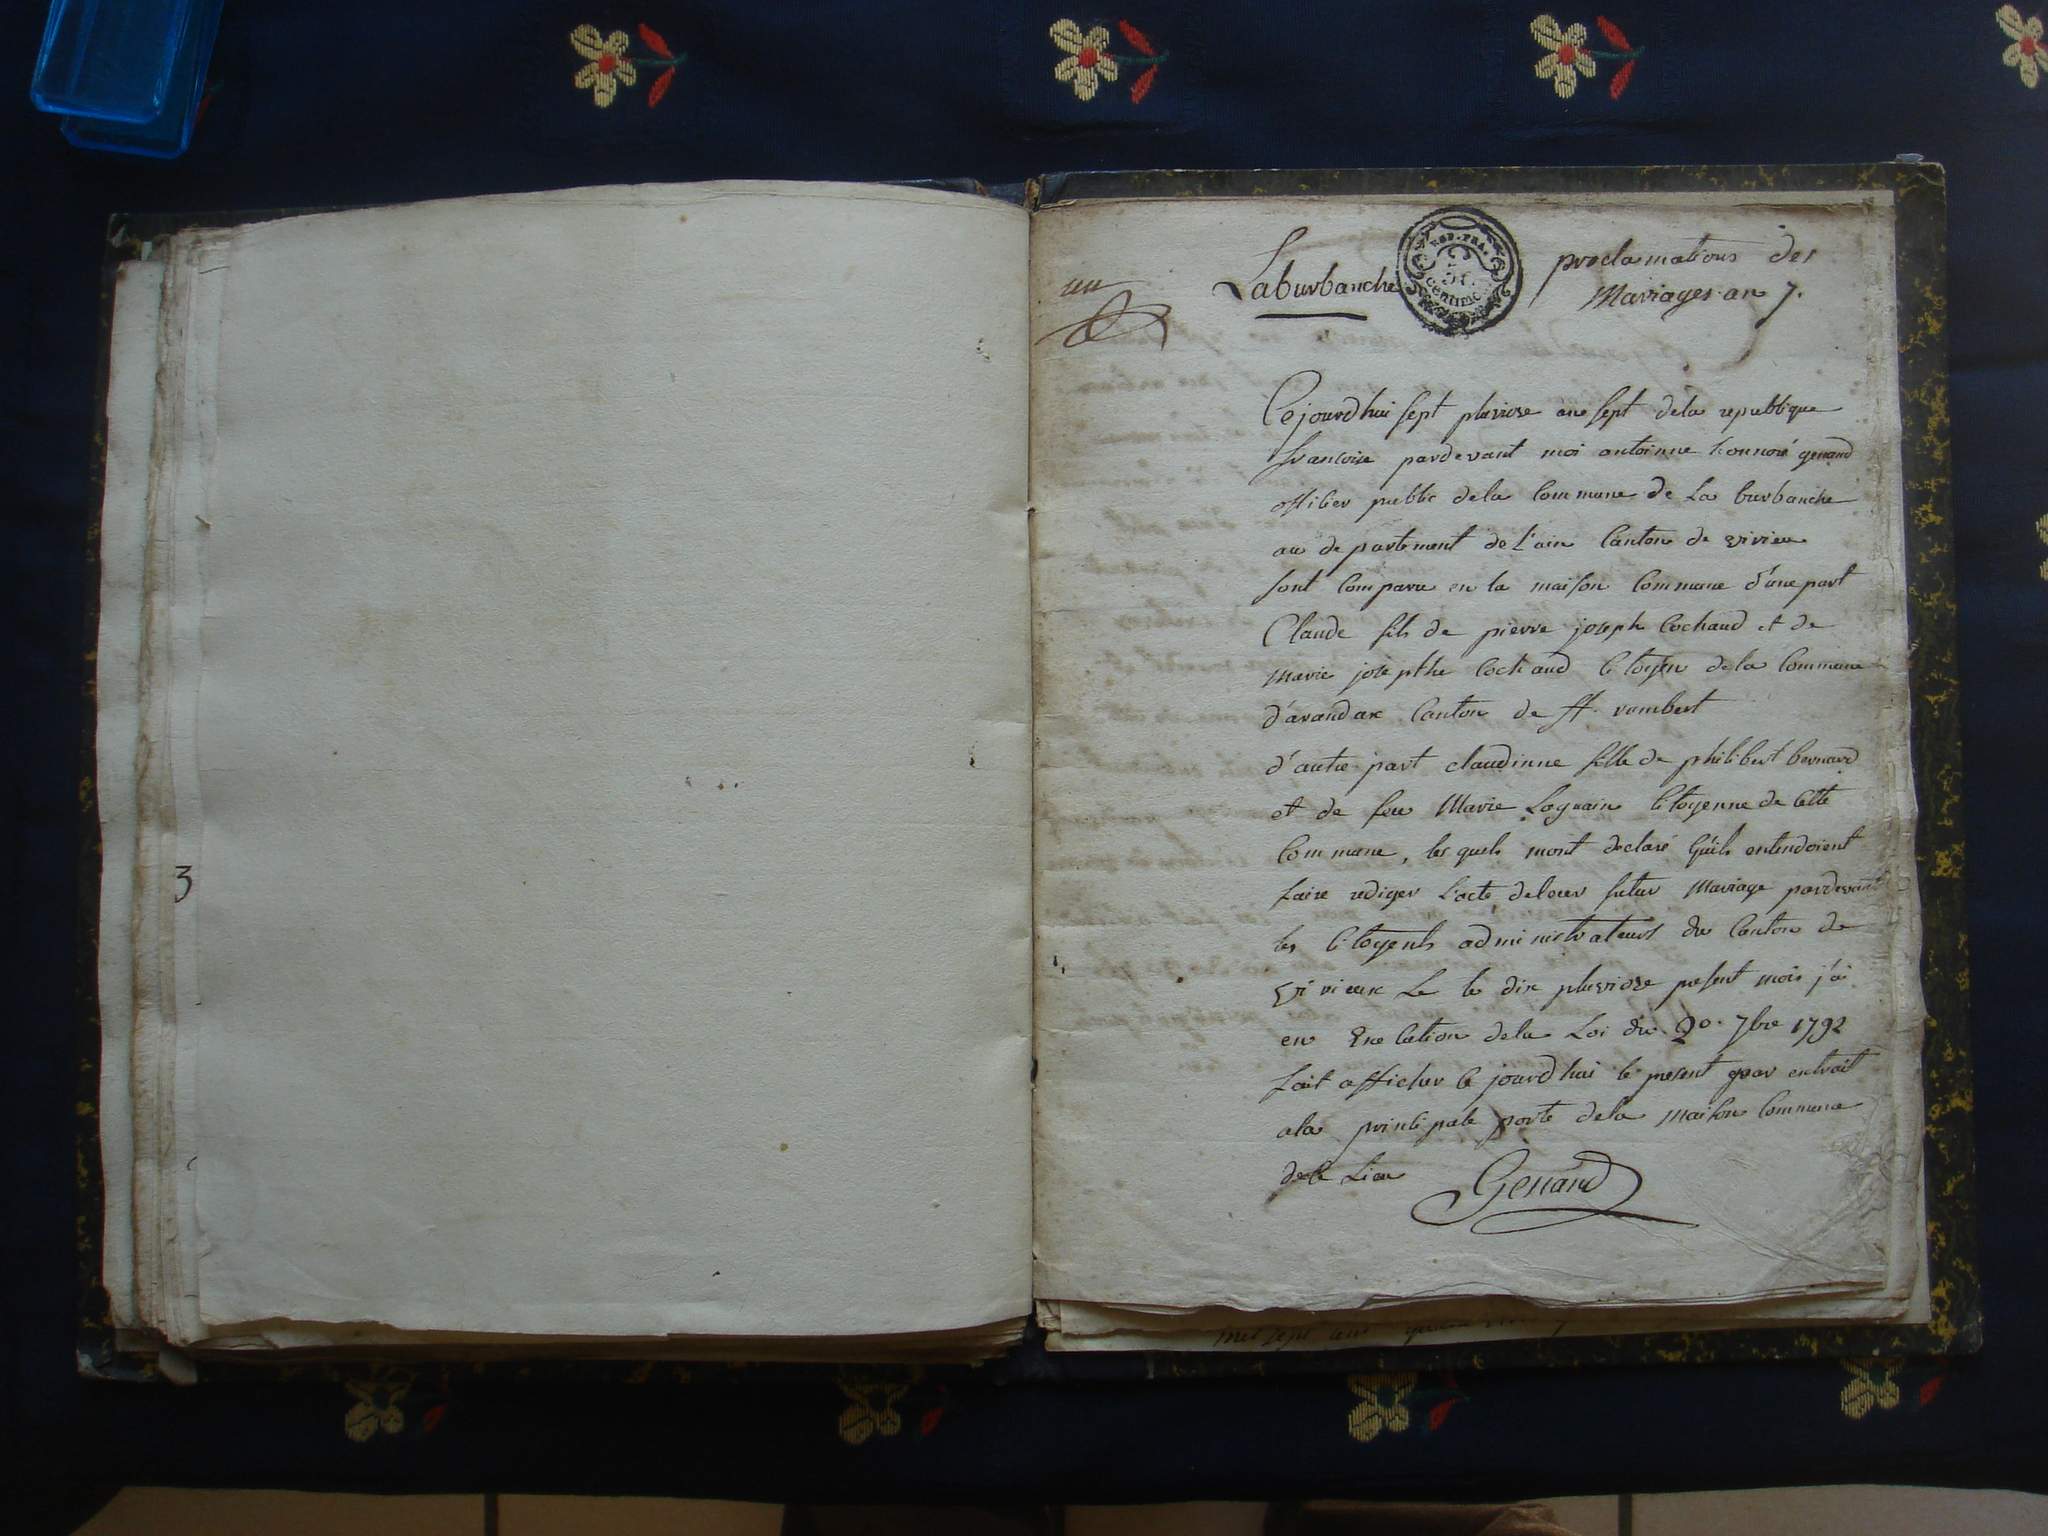 3
un
Laburbanche
REP. FRA.
centime
proclamations des
Mariages an 7.
Cejourdhui sept pluviose an sept dela republique
francoise pardevant moi antoinne honnoré genand
officier public dela Commune de La burbanche
au departement de l'ain Canton de virieu
sont comparu en la maison Commune d'une part
Claude fils de pierre joseph Cochaud et de
Marie josephthe Cochaud Citoyen dela Commune
d'arandax Canton de st. rambert
d'autre part claudinne fille de philibert bernard
et de feu Marie Citoyenne de Cette
Commune, les quels mont declaré Quils entendoient
faire rediger l'acte deleur futur Mariage pardevant
les Citoyents administrateurs du Canton de
virieux Le le dix pluviose present mois j'ai
en Execution dela Loi du 20. 7bre 1792
fait afficher Ce jourdhui le present par extrait
ala principale porte dela maison Commune
de Ce Lieu Genand
mil sept cent